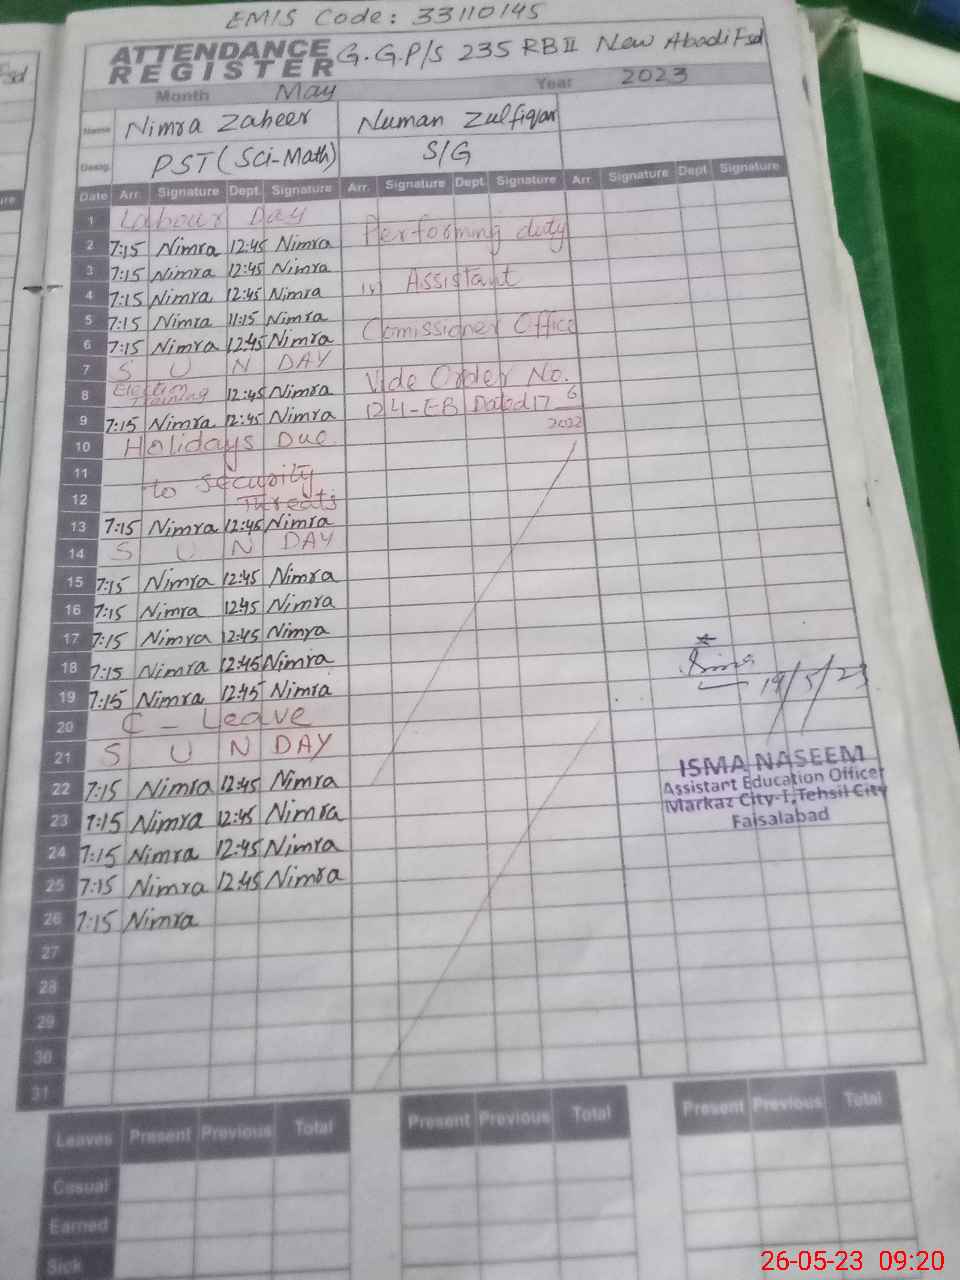 EMIS Code: 33110145
ATTENDANCE REGISTER G.G.P/S 235 RB II New Abadi Fsd
Month May Year 2023
Name Nimra Zaheer Numan Zulfiqar
Desig. PST (Sci-Math) S/G
Date Arr. Signature Dept. Signature Arr. Signature Dept. Signature Arr. Signature Dept. Signature
1 Labour Day
Performing duty
2 7:15 Nimra 12:45 Nimra
3 7:15 Nimra 12:45 Nimra
Assistant
4 7:15 Nimra 12:45 Nimra
5 7:15 Nimra 11:15 Nimra
Comissioner Office
6 7:15 Nimra 12:45 Nimra
7 S U N DAY
Vide Order No.
8 Election Training 12:45 Nimra
124-EB Dated 17 6 2022
9 7:15 Nimra 12:45 Nimra
10 Holidays Due
11 to security
12 Threats
13 7:15 Nimra 12:45 Nimra
14 S U N DAY
15 7:15 Nimra 12:45 Nimra
16 7:15 Nimra 12:45 Nimra
17 7:15 Nimra 12:45 Nimra
18 7:15 Nimra 12:45 Nimra
19 7:15 Nimra 12:45 Nimra
19/5/23
20 C - Leave
21 S U N DAY
22 7:15 Nimra 12:45 Nimra
23 7:15 Nimra 12:45 Nimra
24 7:15 Nimra 12:45 Nimra
25 7:15 Nimra 12:45 Nimra
26 7:15 Nimra
27
28
29
30
31
ISMA NASEEM
Assistart Education Officer
Markaz City-I, Tehsil City
Faisalabad
Leaves Present Previous Total Present Previous Total Present Previous Total
Casual
Earned
Sick
26-05-23 09:20